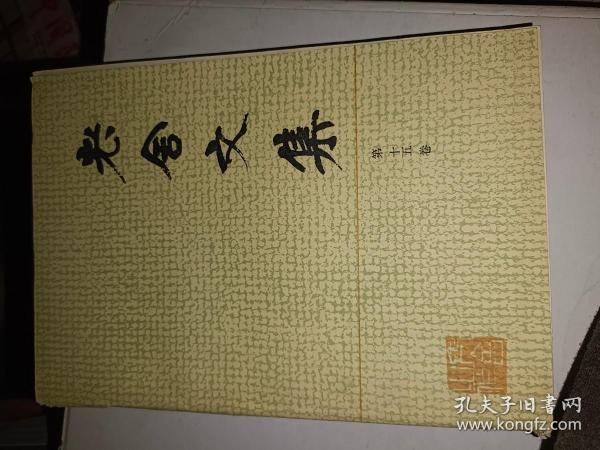 老舍文集
第十五卷
孔夫子旧书网
www.kongfz.com